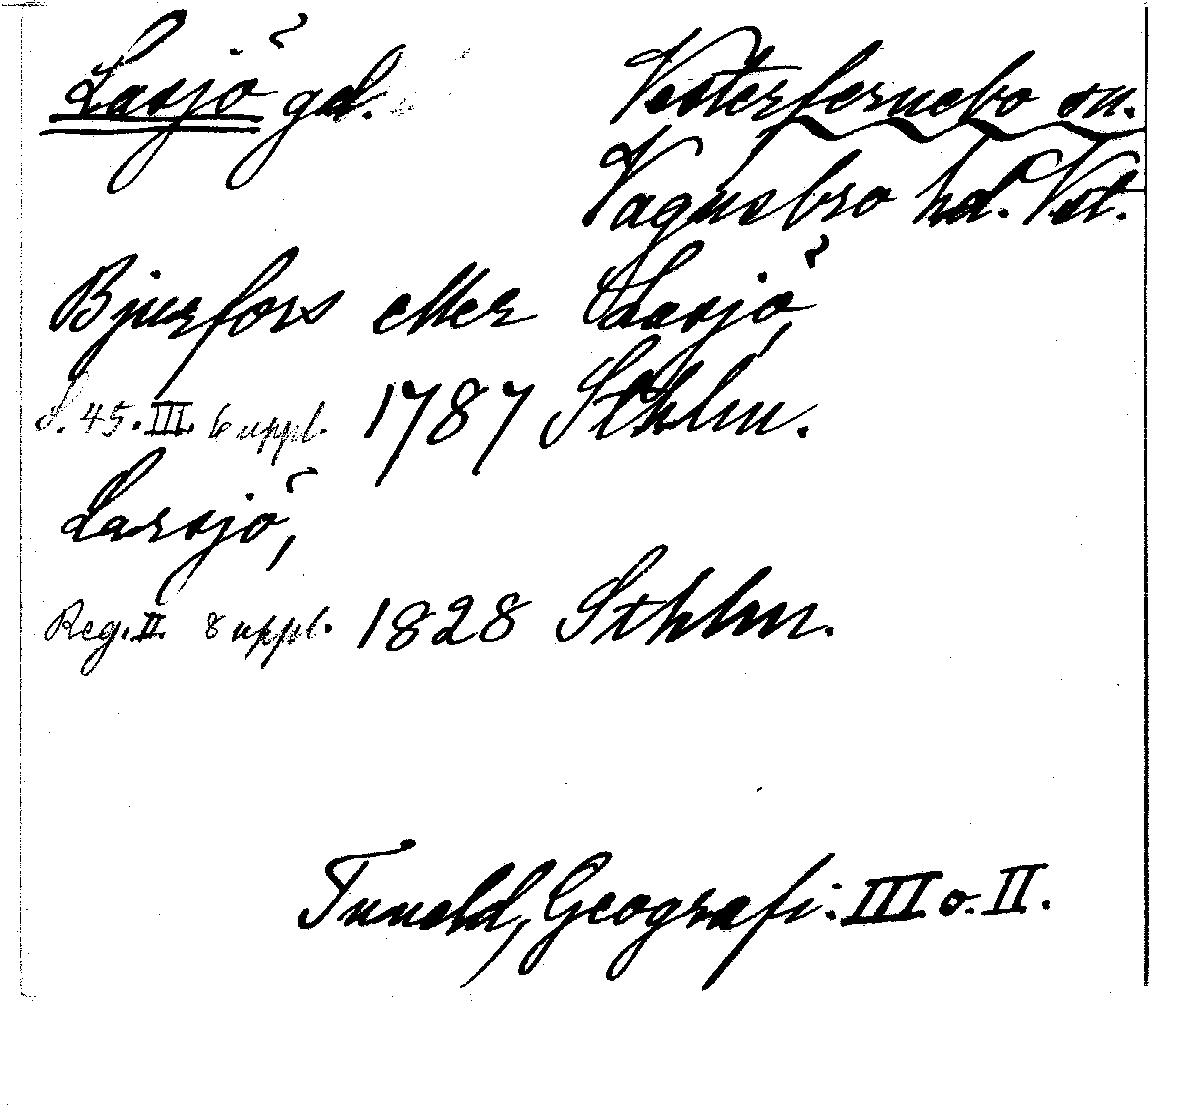 Lasjö gd.
Vesterfernebo sn.
Vagnsbro hd. Vstl.
Bjurfors eller Lasjö,
S. 45. III. 6 uppl. 1787 Sthlm.
Larsjö,
Reg. II. 8 uppl. 1828 Sthlm.
Tuneld, Geografi: III o. II.